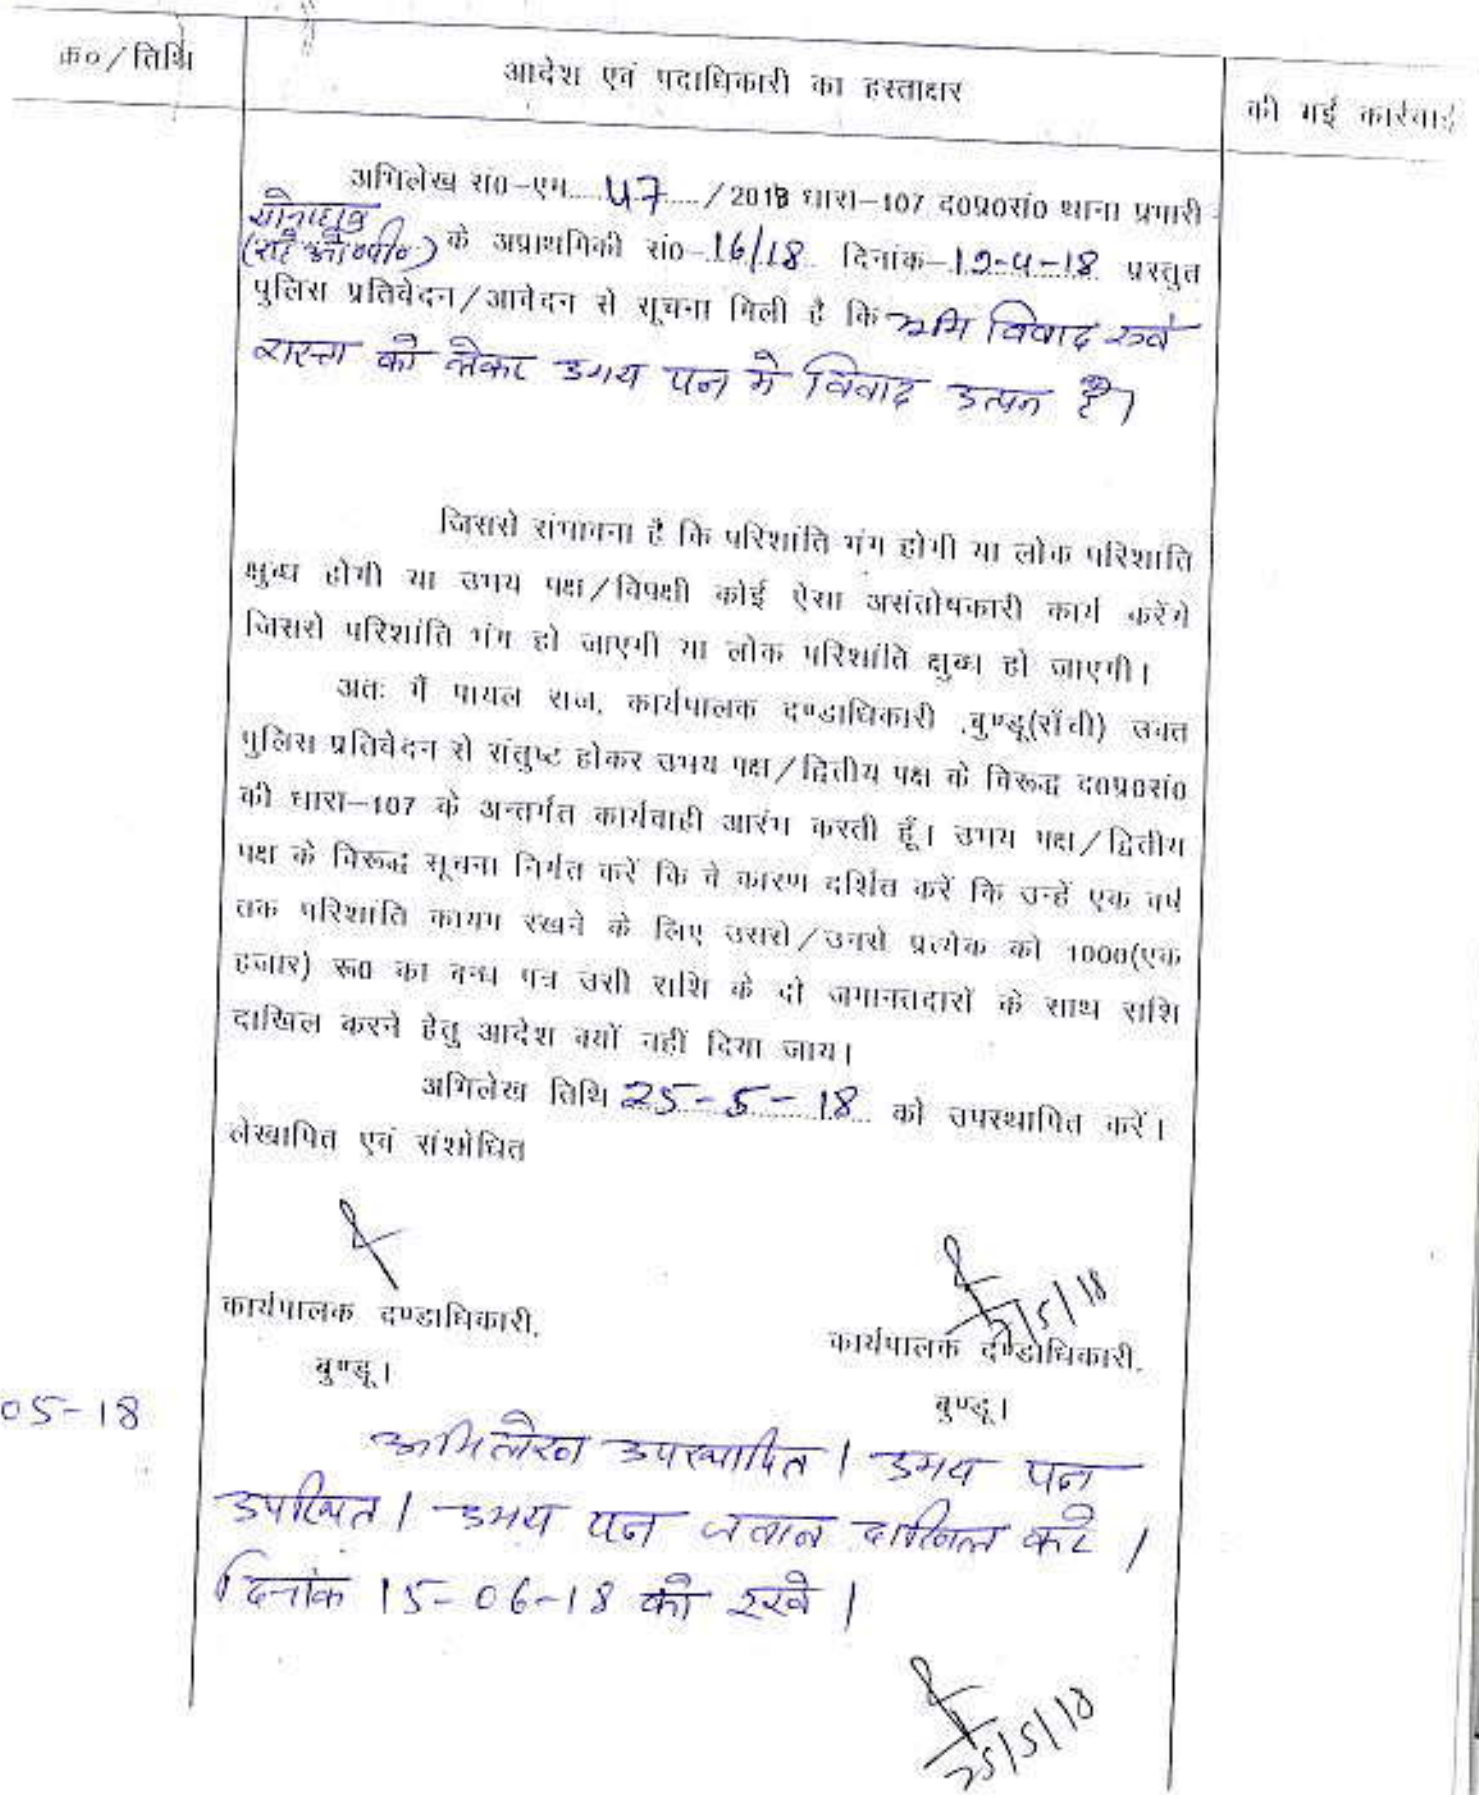 क्र०/तिथि
आदेश एवं पदाधिकारी का हस्ताक्षर
की गई कार्रवाई
अभिलेख सं0-एम 47 /2018 धारा-107 द0प्र0सं0 थाना प्रभारी
सोनाहातु
(राहे ओ०पी०) के अप्राथमिकी सं0-16/18 दिनांक-19-4-18 प्रस्तुत
पुलिस प्रतिवेदन/आवेदन से सूचना मिली है कि भूमि विवाद एवं
रास्ता को लेकर उभय पक्ष में विवाद उत्पन है।
जिससे संभावना है कि परिशांति भंग होगी या लोक परिशांति
क्षुब्ध होगी या उभय पक्ष/विपक्षी कोई ऐसा असंतोषकारी कार्य करेंगे
जिससे परिशांति भंग हो जाएगी या लोक परिशांति क्षुब्ध हो जाएगी।
अतः मैं पायल राज, कार्यपालक दण्डाधिकारी ,बुण्डू(राँची) उक्त
पुलिस प्रतिवेदन से संतुष्ट होकर उभय पक्ष/द्वितीय पक्ष के विरूद्ध द0प्र0सं0
की धारा-107 के अन्तर्गत कार्यवाही आरंभ करती हूँ। उभय पक्ष/द्वितीय
पक्ष के विरूद्ध सूचना निर्गत करें कि वे कारण दर्शित करें कि उन्हें एक वर्ष
तक परिशांति कायम रखने के लिए उससे/उनसे प्रत्येक को 1000(एक
हजार) रू0 का बन्ध पत्र उसी राशि के दो जमानतदारों के साथ राशि
दाखिल करने हेतु आदेश क्यों नहीं दिया जाय।
अभिलेख तिथि 25-5-18 को उपस्थापित करें।
लेखापित एवं संशोधित
कार्यपालक दण्डाधिकारी,
बुण्डू।
/5/18
कार्यपालक दण्डाधिकारी,
बुण्डू।
05-18
अभिलेख उपस्थापित। उभय पक्ष
उपस्थित। उभय पक्ष जवाब दाखिल करे।
दिनांक 15-06-18 को रखे।
25/5/18